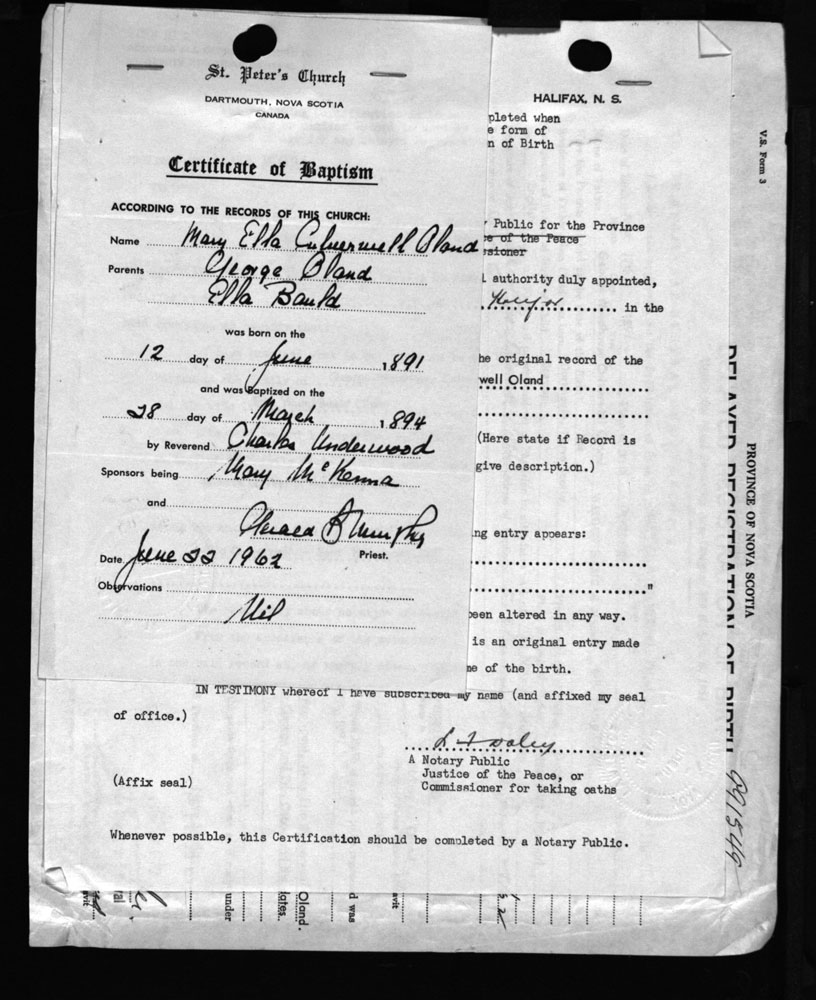 St. Peter's Church
DARTMOUTH, NOVA SCOTIA
CANADA
Certificate of Baptism
ACCORDING TO THE RECORDS OF THIS CHURCH:
Name Mary Ella Culverwell Oland
Parents George Oland
Ella Bauld
was born on the
12 day of June 1891
and was Baptized on the
28 day of March 1894
by Reverend Charles Underwood
Sponsors being Mary McKenna
and
Gerald B Murphy
Priest.
Date June 22 1962
Observations
Nil
HALIFAX, N. S.
pleted when
e form of
n of Birth
Public for the Province
ce of the Peace
ssioner
l authority duly appointed,
in the
he original record of the
well Oland
(Here state if Record is
give description.)
ng entry appears:
"
been altered in any way.
is an original entry made
me of the birth.
IN TESTIMONY whereof I have subscribed my name (and affixed my seal
of office.)
L F Daley
A Notary Public
Justice of the Peace, or
Commissioner for taking oaths
(Affix seal)
Whenever possible, this Certification should be completed by a Notary Public.
V.S. Form 3
PROVINCE OF NOVA SCOTIA
DELAYED REGISTRATION OF BIRTH
991549
under
lates.
Oland.
d was
avit